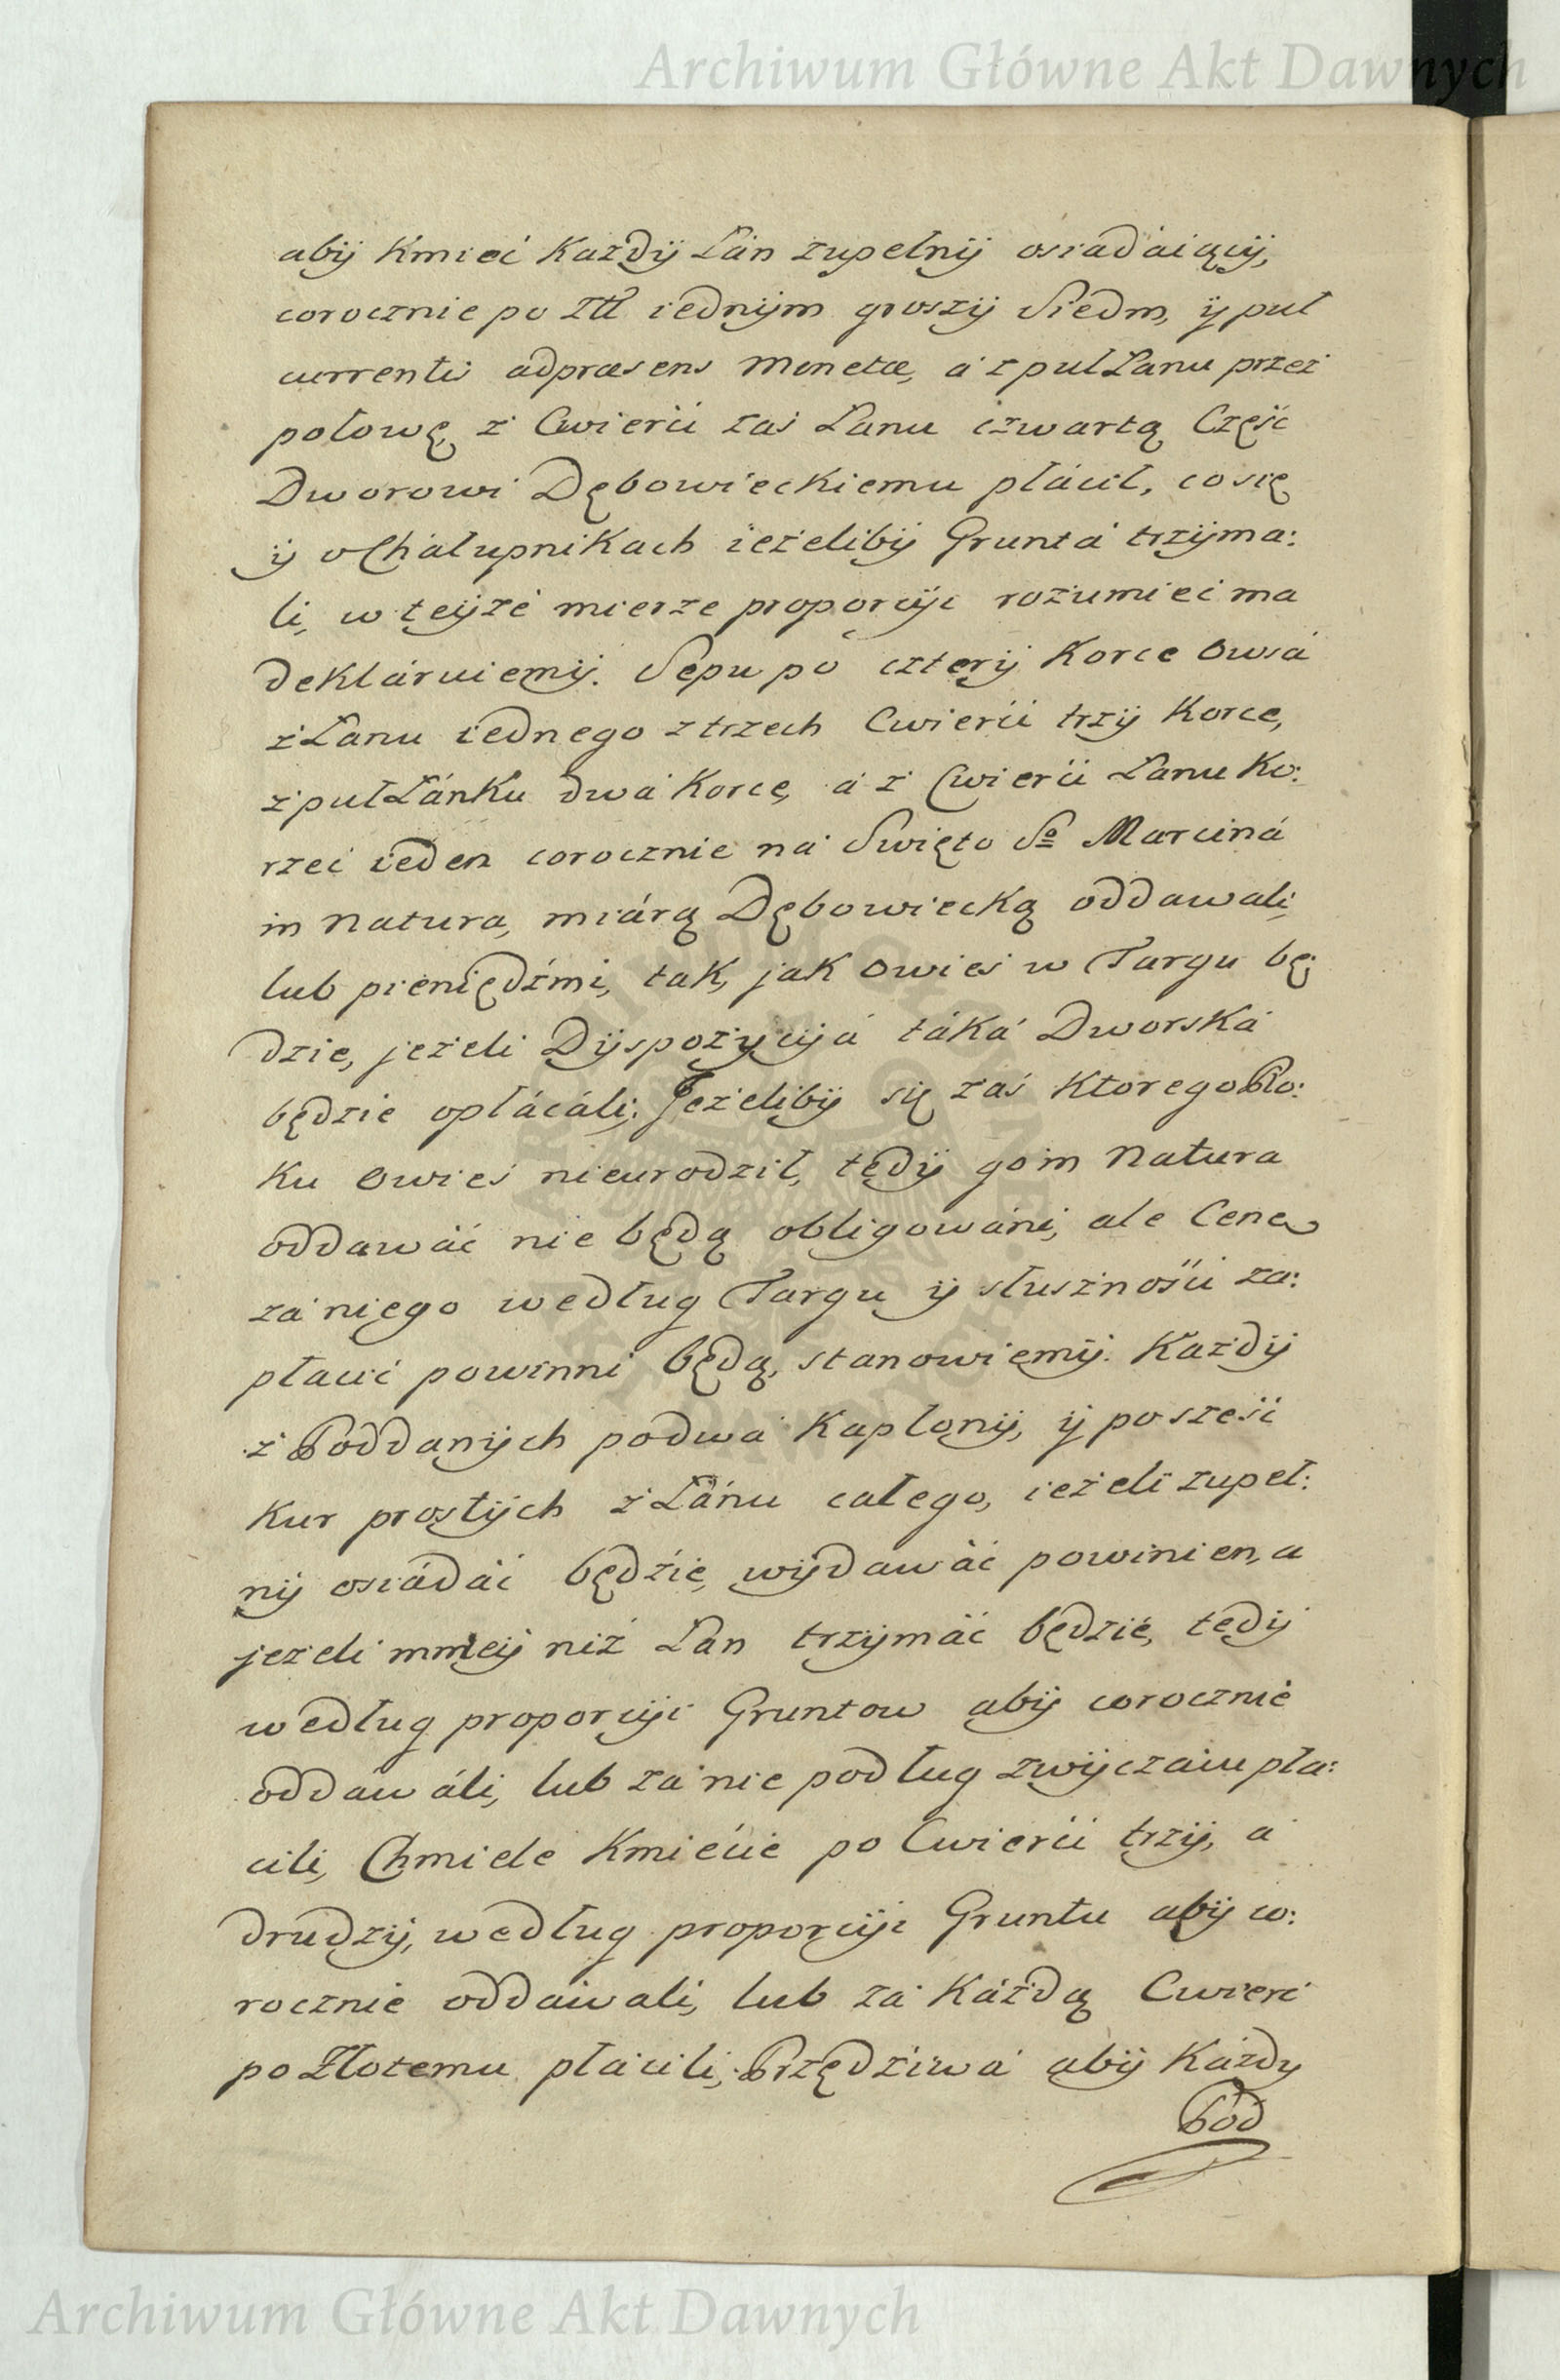 Archiwum Główne Akt Dawnych
abÿ Kmieć KażdÿŁan zupełnÿ osiadáiącÿ,
corocznie po Ztł iednÿm groszÿ Siedm, ÿ puł
currentis adpræsens Monetæ, á z pułŁanu przez
połowę, z Cwierci zaś Łanu czwartą Część
Dworowi Dębowieckiemu płácił, co się
ÿ o Chałupnikach ieżelibÿ Grunta trzÿma:
li, w teÿże mierze proporcÿi rozumieć ma
deklaruiemÿ. Sepu po czterÿ Korce Owsá
z Łanu iednego z trzech Cwierci trzÿ Korce,
z pułŁánku dwá Korce, á z Cwierci Łanu Ko:
rzec ieden corocznie ná Swięto Sº Marciná
in Natura, miárą Dębowiecką oddawali,
lub pieniędźmi, tak, jak Owies w Targu bę:
dzie, jeżeli Dÿspozycÿá táká Dworská
będzie opłácáli; Jeżelibÿ się zaś Ktorego Ro:
ku Owies nieurodził, tedÿ go in Natura
oddawáć nie będą obligowáni, ale Cenę
zá niego według Targu ÿ słusznośći za:
płacić powinni będą, stanowiemÿ. Każdÿ
z Poddanÿch po dwá Kapłonÿ, ÿ po sześć
Kur prostÿch z Łánu całego, ieżeli zupeł:
nÿ osiádáć będźie, wÿdawáć powinien, a
jeżeli mnieÿ niż Łan trzÿmáć będzie, tedÿ
według proporcÿi Gruntow abÿ corocznie
oddawáli, lub zá nie podług zwÿczaiu pła:
cili, Chmiele Kmiećie po Cwierci trzÿ, á
drudzÿ, według proporcÿi Gruntu abÿ co:
rocznie oddawali, lub zá Każdą Cwierć
po Złotemu płácili, Przędźiwá abÿ Każdy
Pod
Archiwum Główne Akt Dawnych